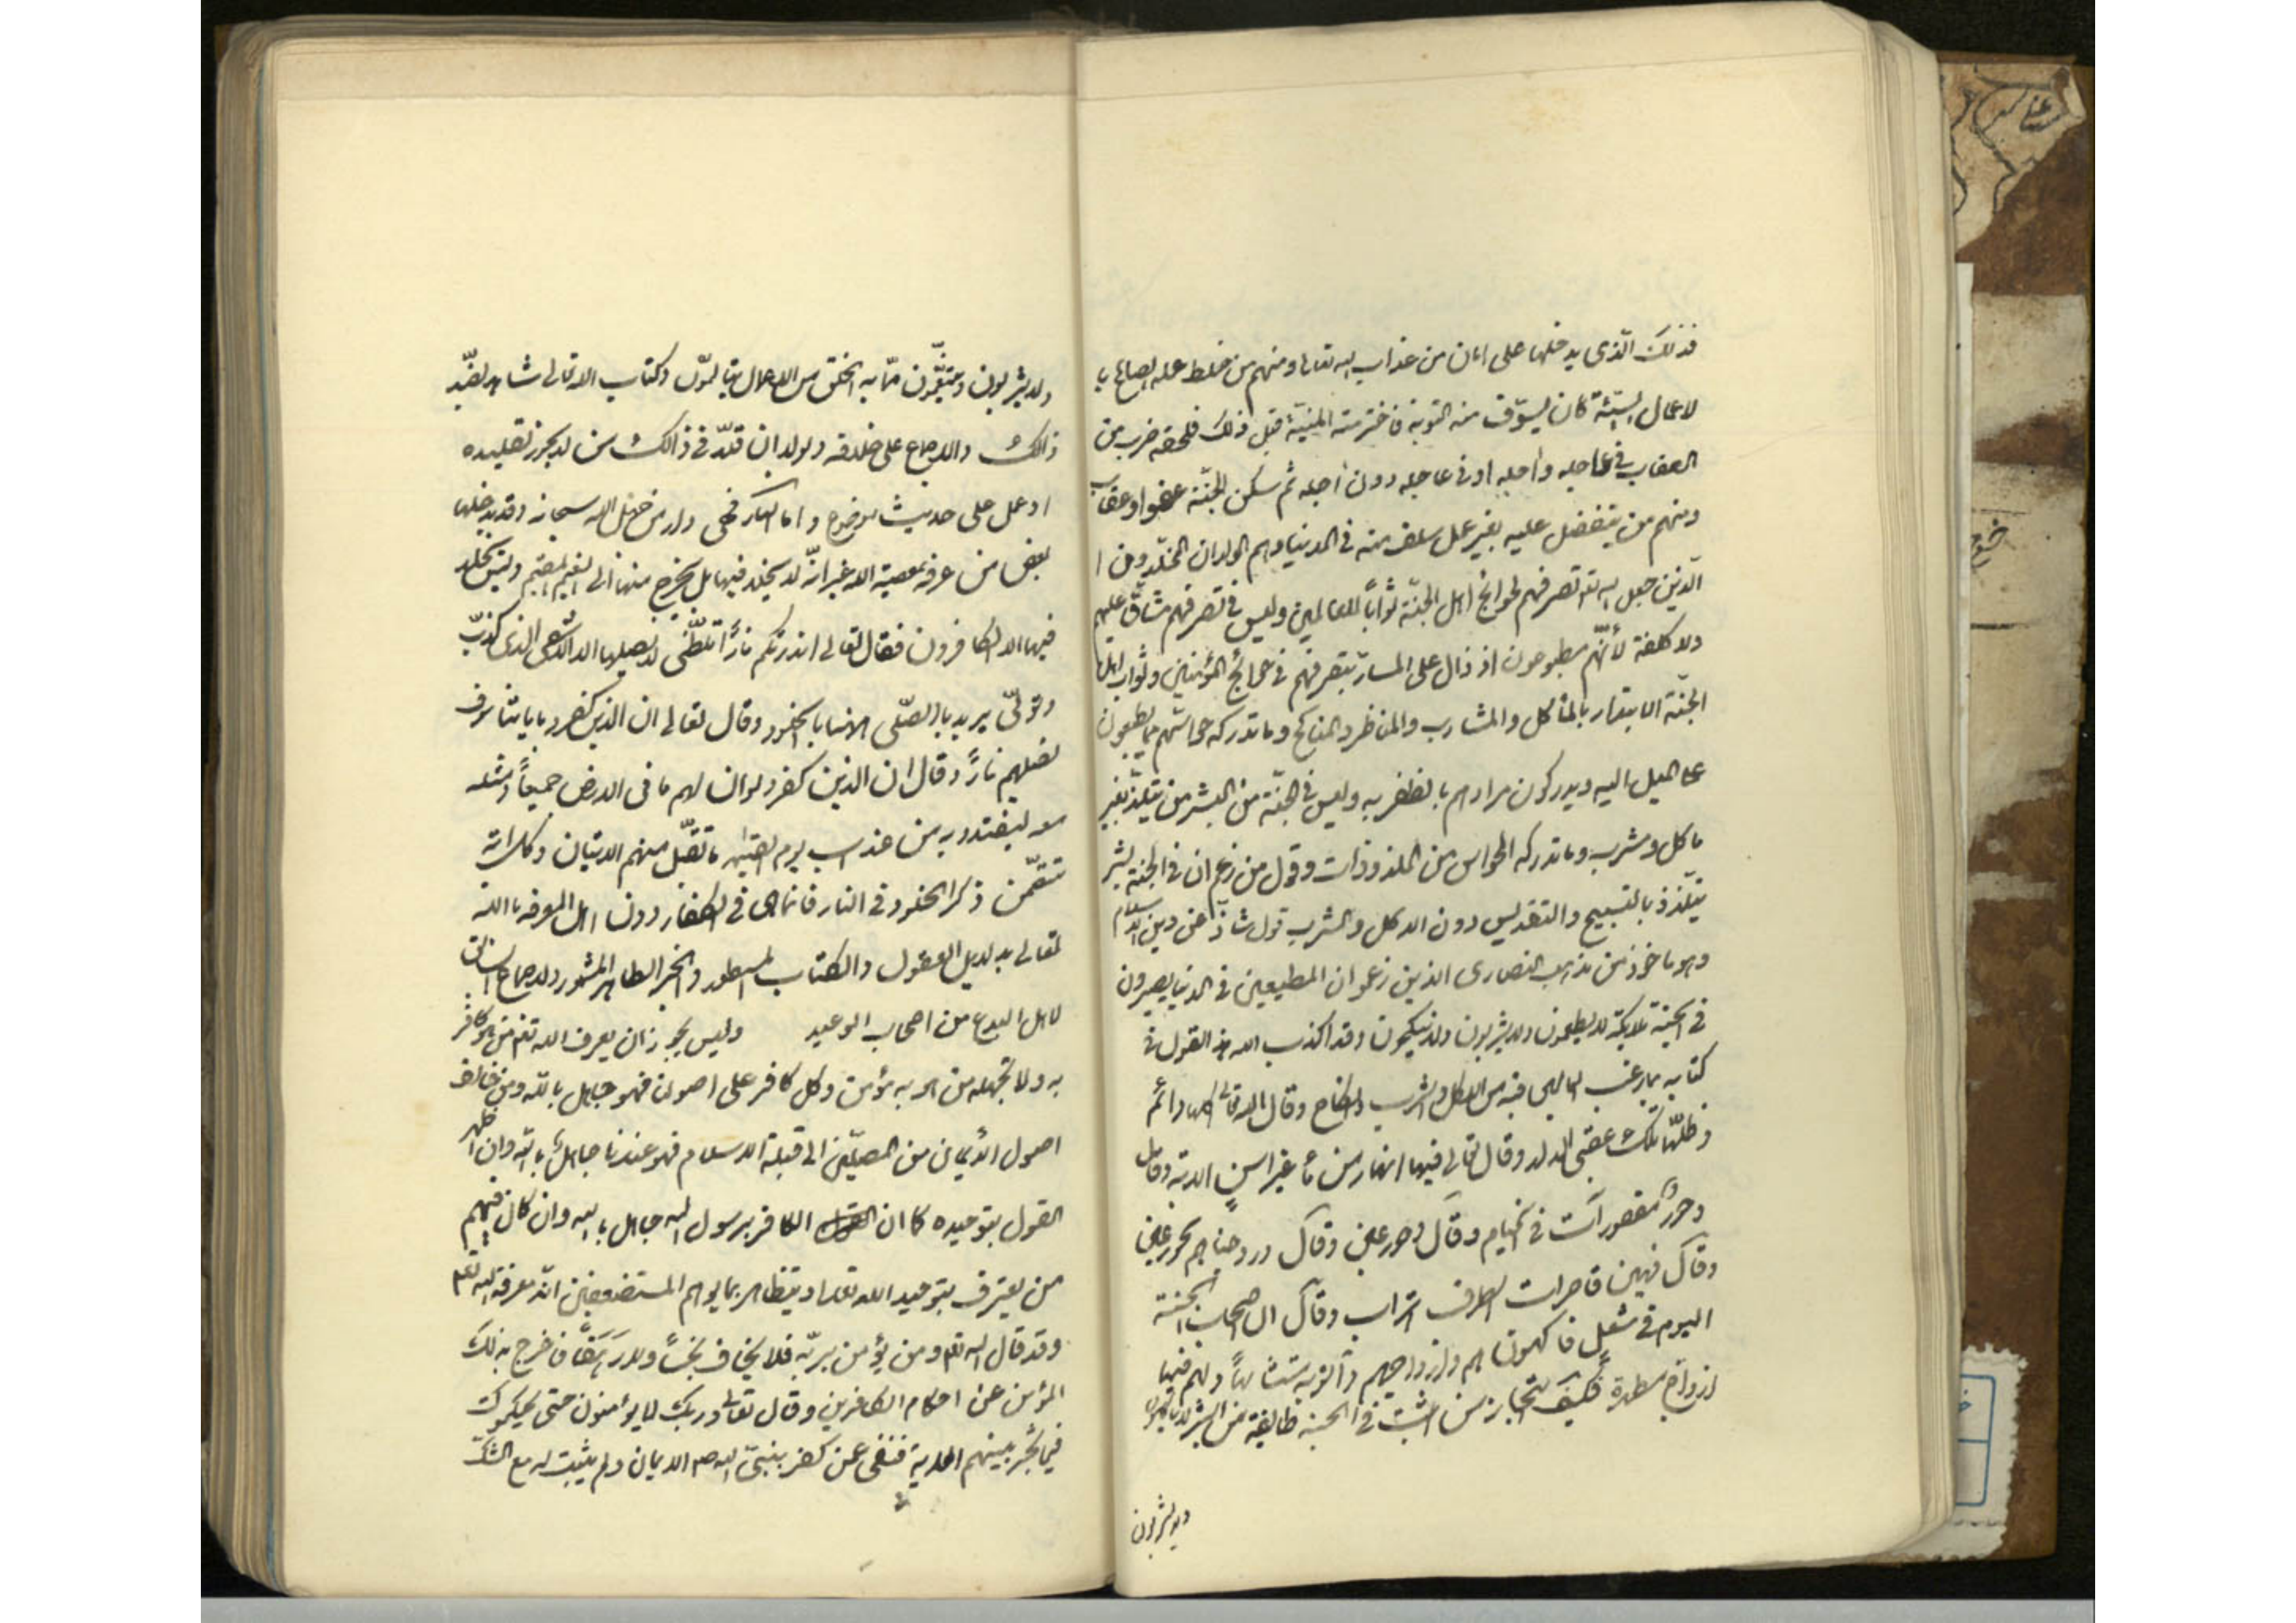 فذلك الّذى يدخلها على امان من عذاب الله تعالى ومنهم من خلط عمله الصالح با
لاعمال السيّئة كان يسوّف منه التوبة فاخترمته المنيّة قبل ذلك فلحقه ضرب من
العقاب فى عاجله واجله او فى عاجله دون اجله ثم سكن الجنّة عفوا وعقاب
ومنهم من يتفضل عليه بغير عمل سلف منه فى الدنيا وهم الولدان المخلّدون ا
الّذين جعل الله تع تصرفهم لحوائج اهل الجنّة ثواباً للعالمين وليس فى تصرفهم مشاقّ عليهم
ولا كلفة لأنّهم مطبوعون اذ ذاك على المسارّ بتصرفهم فى حوائج المؤمنين وثواب اهل
الجنّة الابتذار بالمأكل والمشارب والمناظر والمناكح وما تدركه حواسّهم مما يطبعون
على الميل اليه ويدركون مرادهم بالظفر به وليس فى الجنّة من البشر من يتلذّذ بغير
ماكل ومشرب وما تدركه الحواس من الملذوذات وقول من زعم ان فى الجنة بشر
يتلّذذ بالتسبيح والتقديس دون الاكل والشرب قول شاذّ عن دين الاسلام
وهو ماخوذ من مذهب النصارى الذين زعموا ان المطيعين فى الدنيا يصيرون
فى الجنة ملائكة لا يطعمون ولا يشربون ولا ينكحون وقد اكذب الله هذا القول فى
كتابه بما رغّب العالمين فيه من الاكل والشرب والنكاح وقال الله تعالى اكلها دائم
وظلّها تلك عقبى الدار وقال تعالى فيها انهار من ماء غير اسن الاية وقال
وحورٌ مقصورات فى الخيام وقال وحور عين وقال وزوجناهم بحور عين
وقال فيهن قاصرات الطرف اتراب وقال ان اصحاب الجنة
اليوم فى شغل فاكهون هم وازواجهم وأتوا به متشابهاً ولهم فيها
ازواج مطهرة فكيف استجاز من اثبت فى الجنة طايفة من البشر لا يأكلون
ولا يشربون
ولا يشربون ويتنعّمون ممّا به الخلق من الاعمال يتألمون وكتاب الله تعالى شاهد بضدّ
ذالك والاجماع على خلافه ولولا ان قلّد فى ذالك من لا يجوز تقليده
او عمل على حديث موضوع واما النار فهى دار من جهل الله سبحانه وقد يدخلها
بعض من عرفه بمعصية الله غير انّه لا يخلد فيها بل يخرج منها الى النعيم المقيم وليس يخلد
فيها الا الكافرون فقال تعالى انذرتكم ناراً تلظّى لا يصليها الا الأشقى الذى كذّب
وتولّى يريد بالصّلى هنا الخلود وقال تعالى ان الذين كفروا باياتنا سوف
نصليهم ناراً وقال ان الذين كفروا لو ان لهم ما فى الارض جميعاً ومثله
معه ليفتدوا به من عذاب يوم القيمة ما تقبّل منهم الايتان وكل اية
تتضمّن ذكر الخلود فى النار فانما هى فى الكفار دون اهل المعرفة بالله
تعالى بدليل العقول والكتاب المسطور والخبر الظاهر المشهور والاجماع السابق
لاهل البدع من اصحاب الوعيد وليس يجوز ان يعرف الله تع من هو كافر
به ولا يجهله من هو به مؤمن وكل كافر على اصولنا فهو جاهل بالله ومن خالف
اصول الأيمان من المصلّين الى قبلة الاسلام فهو عندنا جاهلٌ بالله وان اظهر
القول بتوحيده كما ان الكافر برسول الله جاهل بالله وان كان فيهم
من يعترف بتوحيد الله تعالى ويتظاهر بما يوهم المستضعفين انّه معرفة الله تع
وقد قال الله تع ومن يؤمن بربّه فلا يخاف بخساً ولا رهقاً فاخرج بذلك
المؤمن عن احكام الكافرين وقال تعالى وربك لا يؤمنون حتى يحكموك
فيما شجر بينهم الاية فنفى عمن كفر بنبىّ الله ص الايمان ولم يثبت له مع الشك